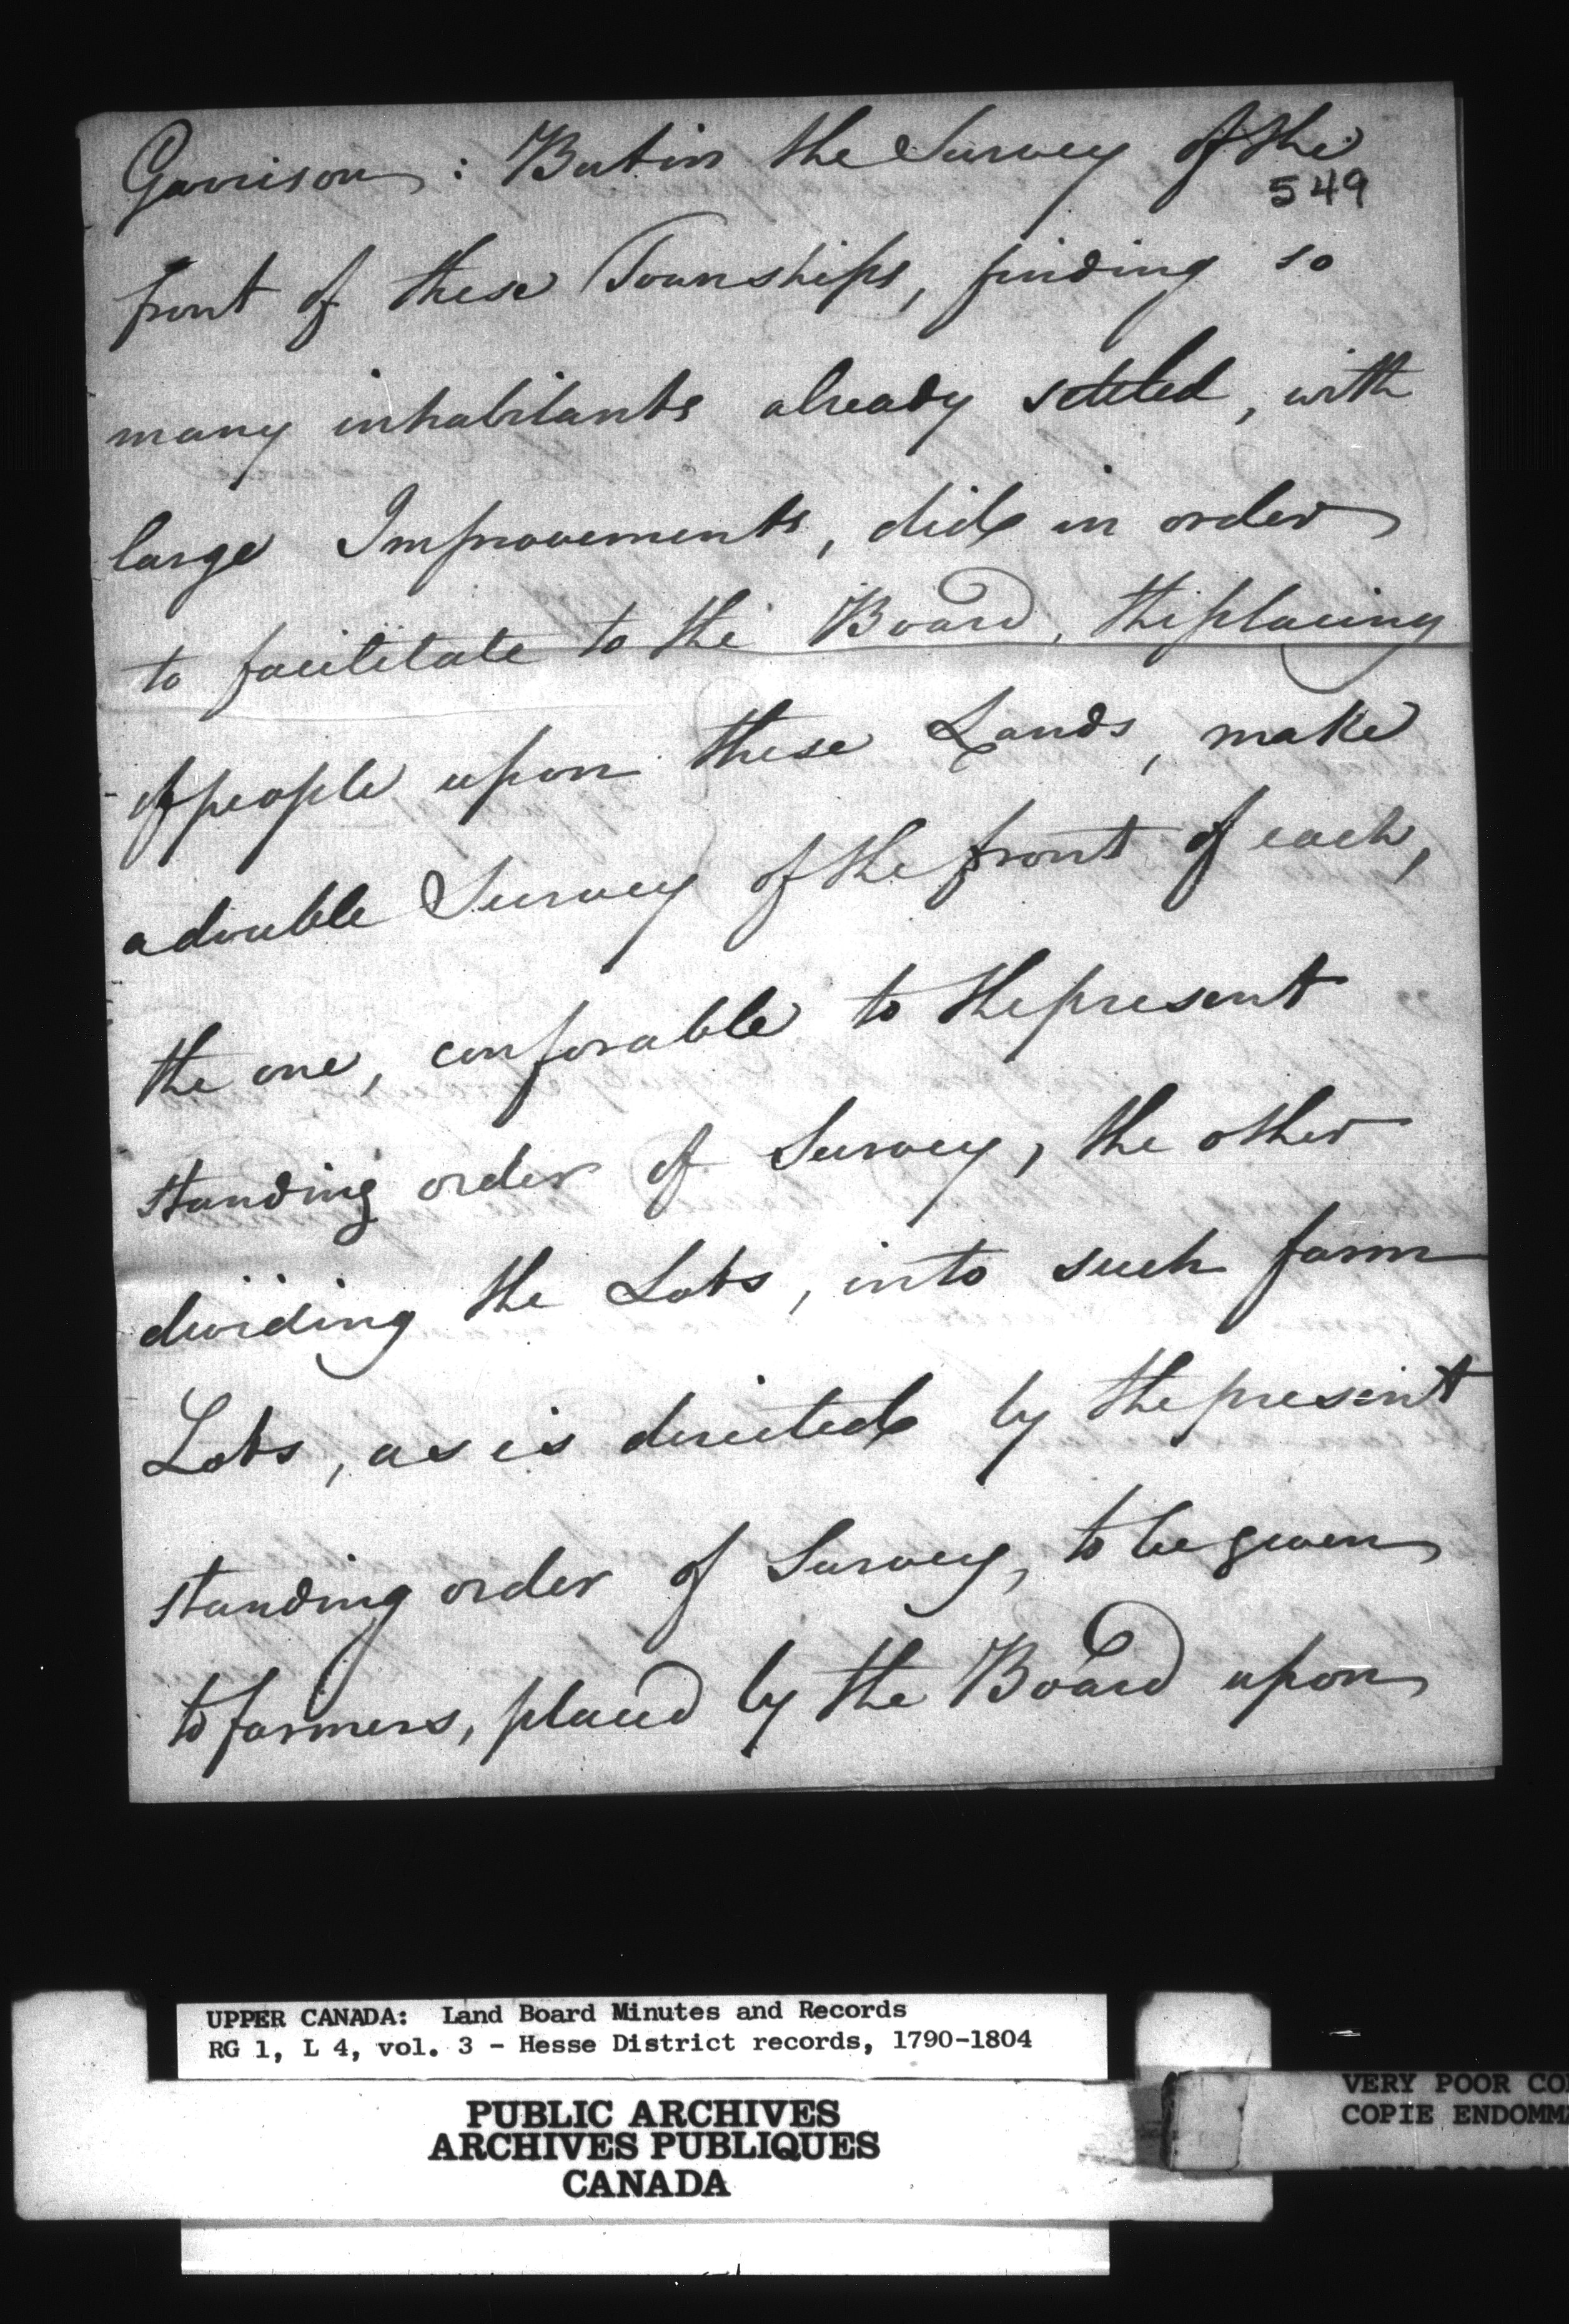 Garrison : But in the Survey of the
549
front of these Townships, finding so
many inhabitants already settled, with
large Improvements, did in order
to facilitate to the Board, the placing
of people upon these Lands, make
a double Survey of the front of each,
the one, conforable to the present
standing order of Survey, the other
dividing the Lots, into such farm
Lots, as is directed by the present
standing order of Survey, to be given
to farmers, placed by the Board upon
UPPER CANADA: Land Board Minutes and Records
RG 1, L 4, vol. 3 - Hesse District records, 1790-1804
PUBLIC ARCHIVES
ARCHIVES PUBLIQUES
CANADA
VERY POOR CO
COPIE ENDOMM